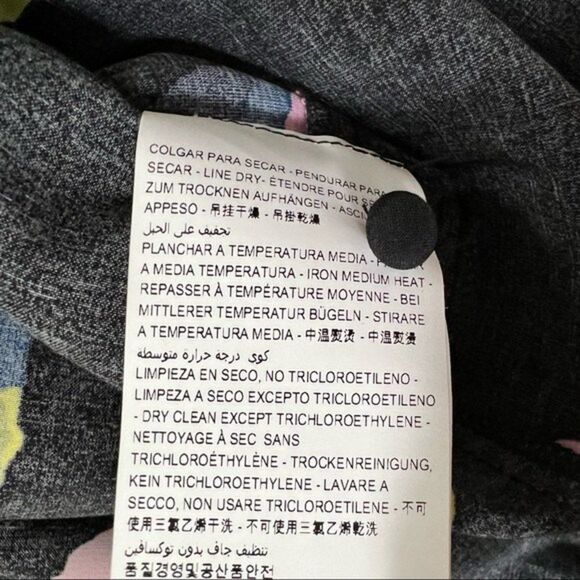 COLGAR PARA SECAR - PENDURAR PARA
SECAR - LINE DRY- ÉTENDRE POUR
ZUM TROCKNEN AUFHÄNGEN -
APPESO - 吊挂干燥 - 吊掛乾燥
تجفيف على الحبل
PLANCHAR A TEMPERATURA MEDIA -
A MEDIA TEMPERATURA - IRON MEDIUM HEAT -
REPASSER À TEMPÉRATURE MOYENNE - BEI
MITTLERER TEMPERATUR BÜGELN - STIRARE
A TEMPERATURA MEDIA - 中温熨烫 - 中溫熨燙
كوي درجة حرارة متوسطة
LIMPIEZA EN SECO, NO TRICLOROETILENO -
LIMPEZA A SECO EXCEPTO TRICLOROETILENO
- DRY CLEAN EXCEPT TRICHLOROETHYLENE -
NETTOYAGE À SEC SANS
TRICHLOROÉTHYLÈNE - TROCKENREINIGUNG,
KEIN TRICHLOROETHYLEN - LAVARE A
SECCO, NON USARE TRICLOROETILENO - 不可
使用三氯乙烯干洗 - 不可使用三氯乙烯乾洗
تنظيف جاف بدون توكسافين
품질경영및공산품안전